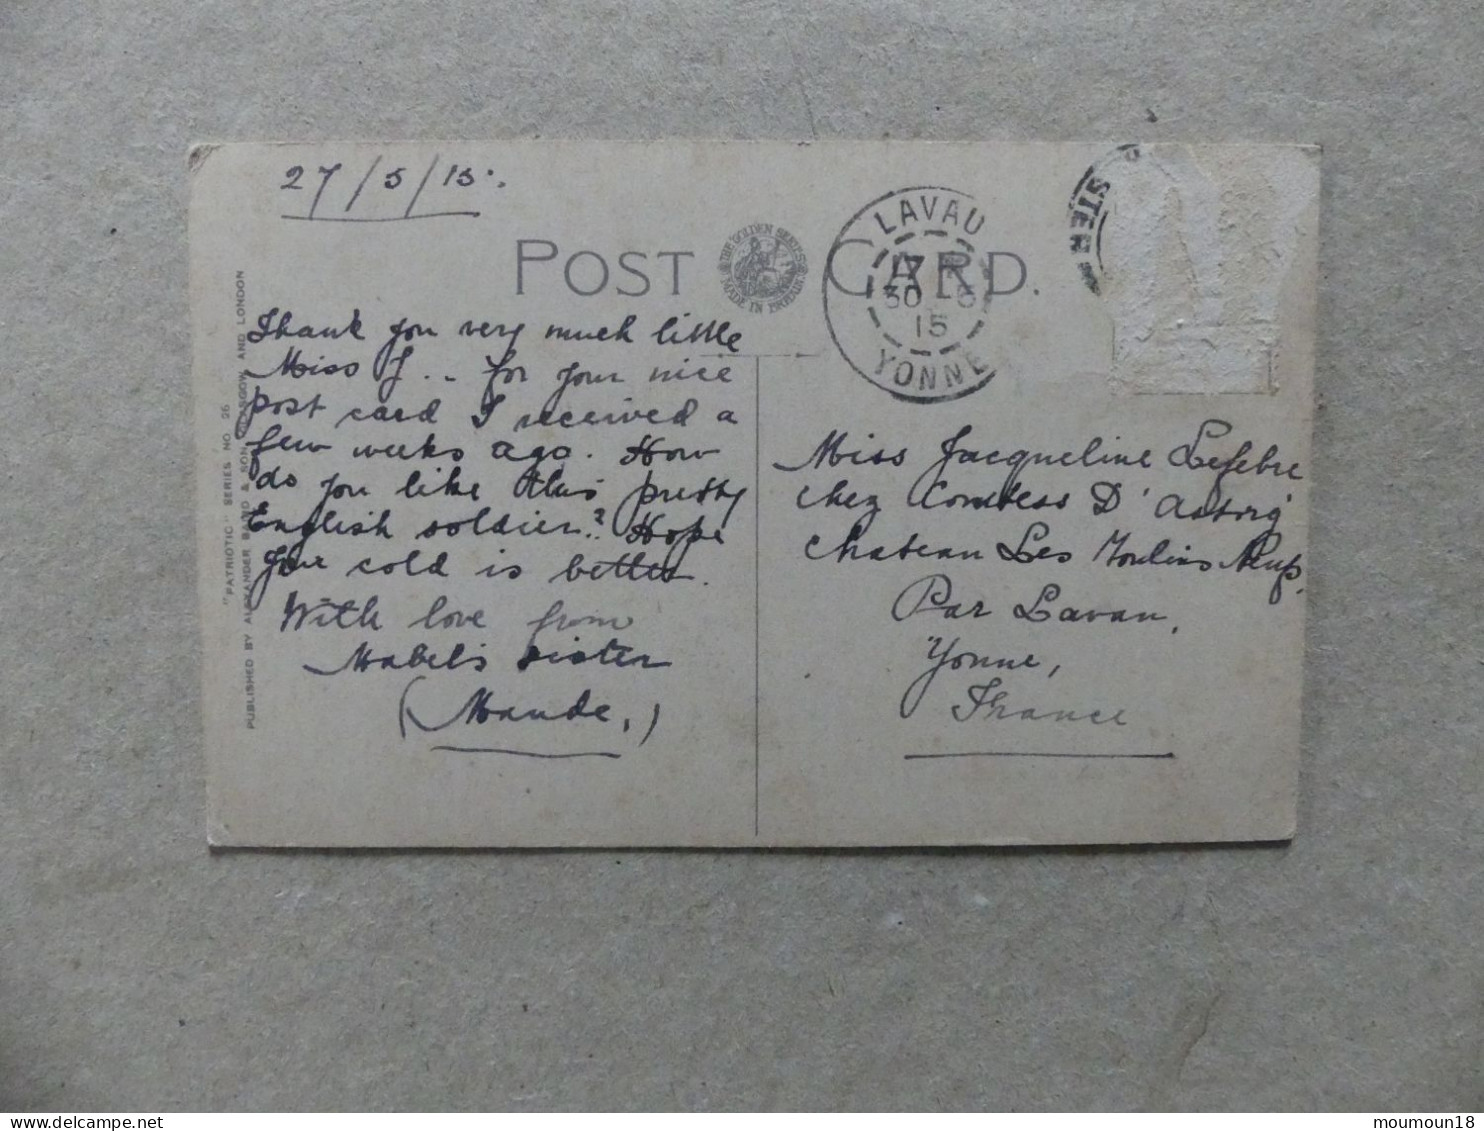 27/5/15.
POST CARD.
THE GOLDEN SERIES
MADE IN ENGLAND
LAVAU
17
30 5
15
YONNE
STER
Thank you very much little
Miss J.. for your nice
post card I received a
few weeks ago. How
do you like this pretty
English soldier? Hope
your cold is better.
With love from
Mabel's sister
(Maude.)
Miss Jacqueline Lefebre
chez Comtess D'Astorg
Chateau Les Moulins
Par Lavau,
Yonne,
France
"PATRIOTIC" SERIES NO. 26
PUBLISHED BY ALEXANDER BAIRD & SON, GLASGOW AND LONDON
moumoun18